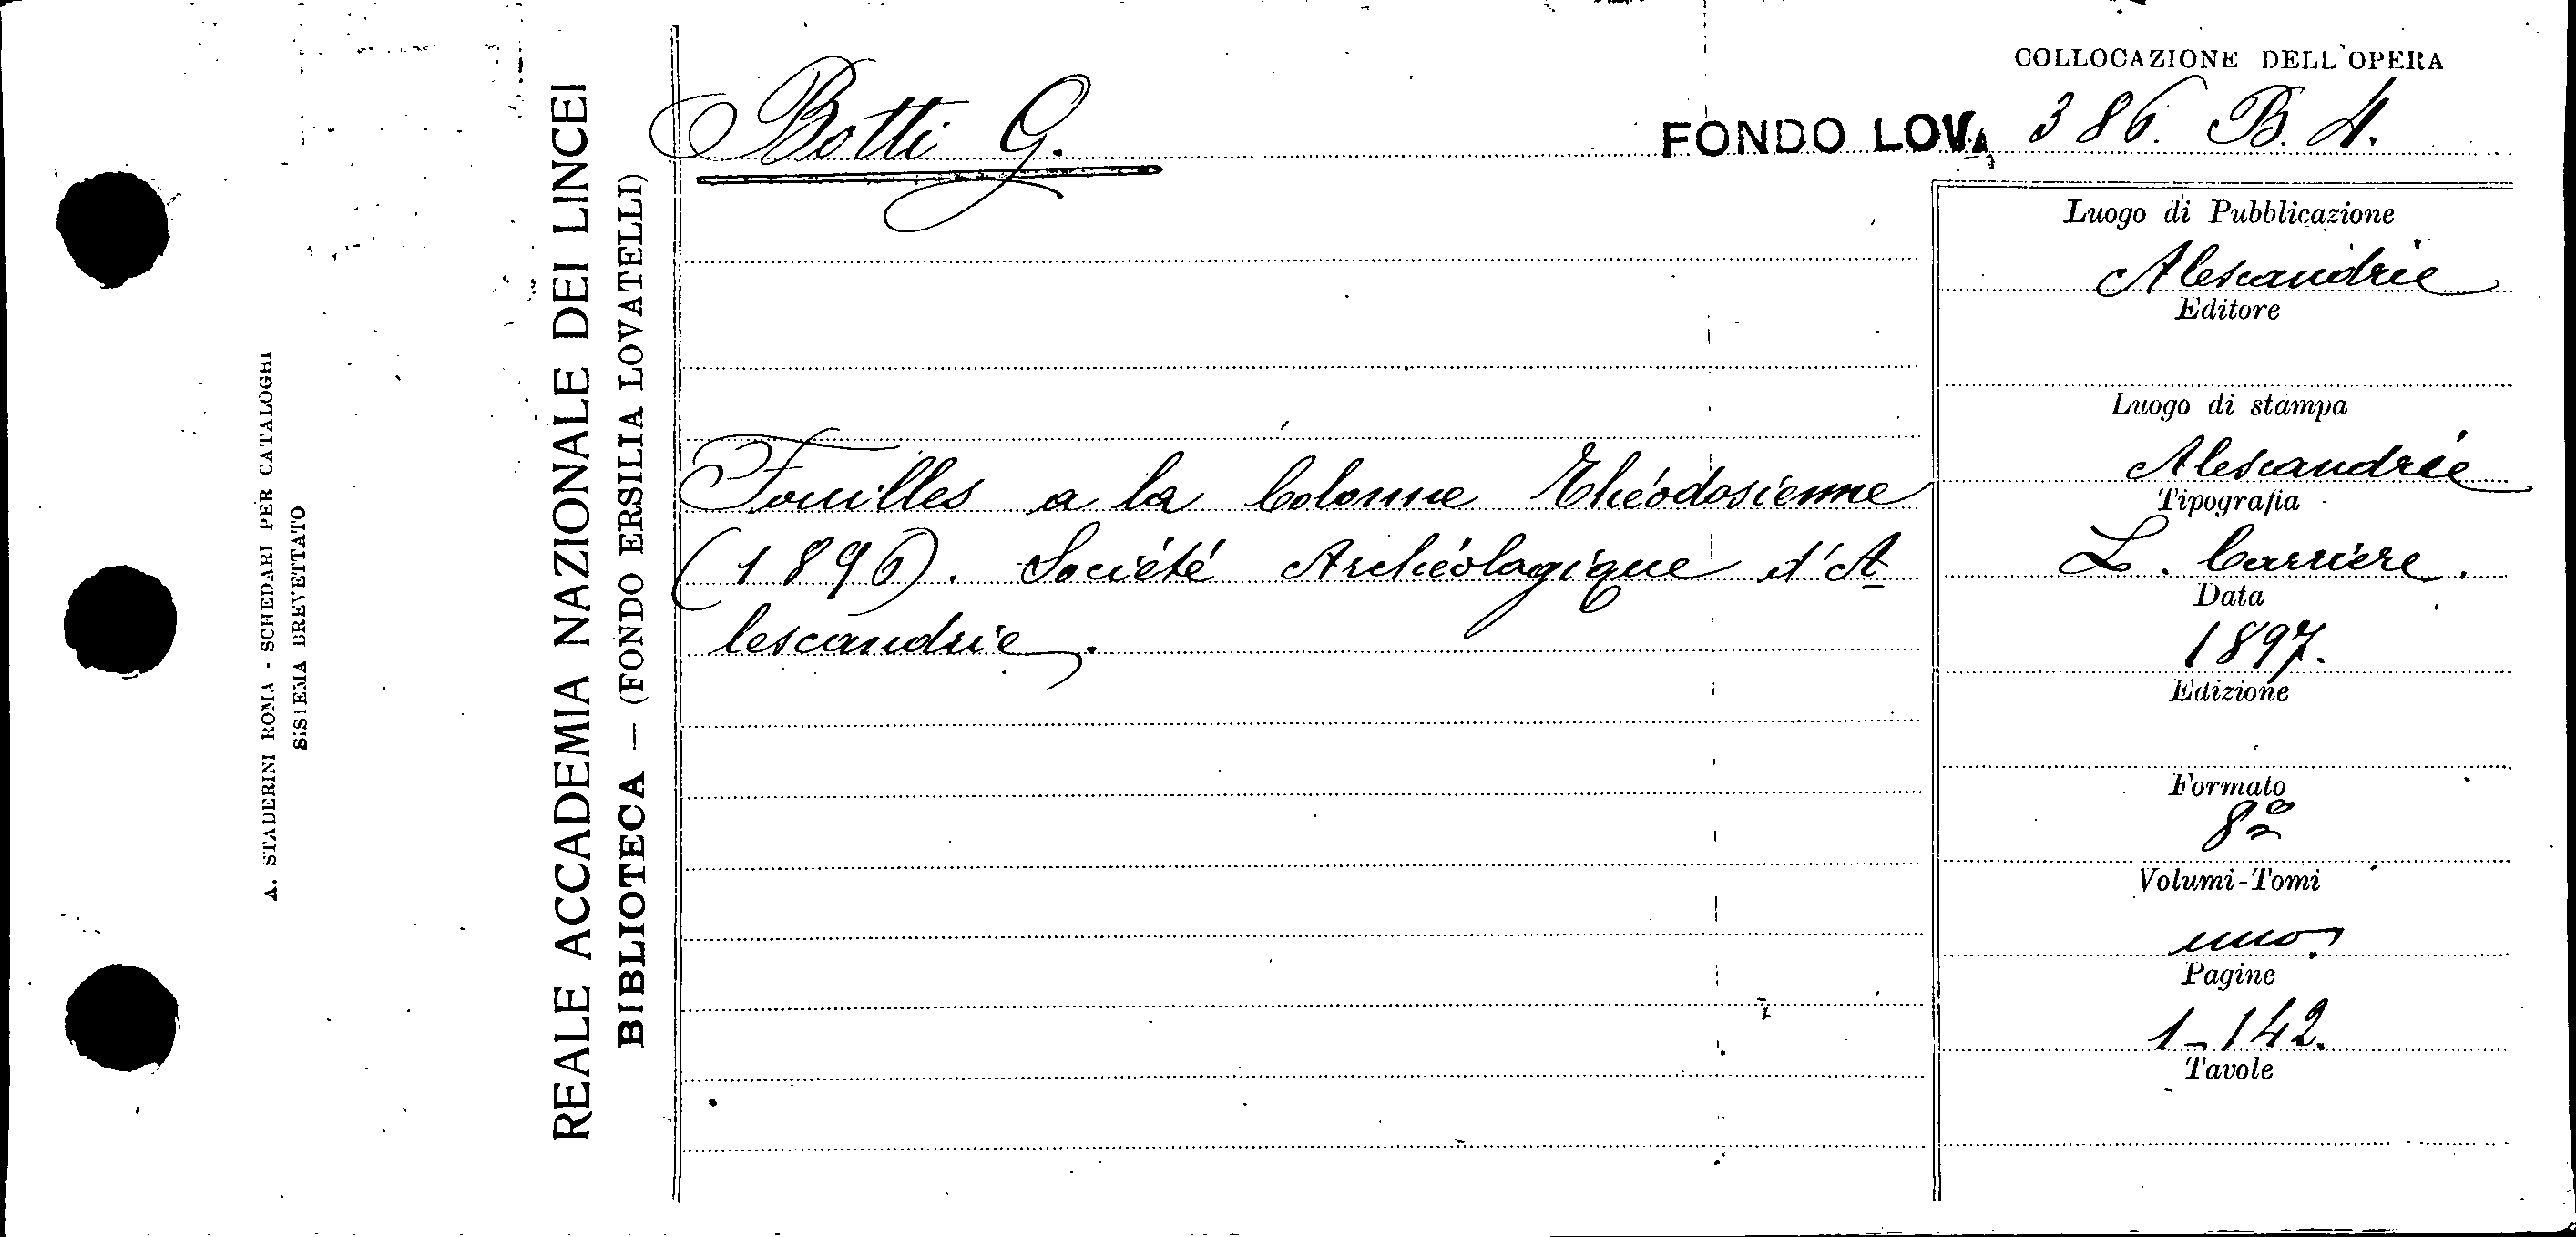 COLLOCAZIONE DELL'OPERA
Botti G.
FONDO LOV. 386. B. 4.
Fouilles a la Colonne Théodosienne
(1896). Société Archéologique d'A
lescandrie.
Luogo di Pubblicazione
Alescandrie
Editore
Luogo di stampa
Alescandrie
Tipografia
L. Carriere.
Data
1897.
Edizione
Formato
8º
Volumi-Tomi
uno.
Pagine
1-142.
Tavole
REALE ACCADEMIA NAZIONALE DEI LINCEI
BIBLIOTECA — (FONDO ERSILIA LOVATELLI)
A. STADERINI ROMA - SCHEDARI PER CATALOGHI
SISTEMA BREVETTATO